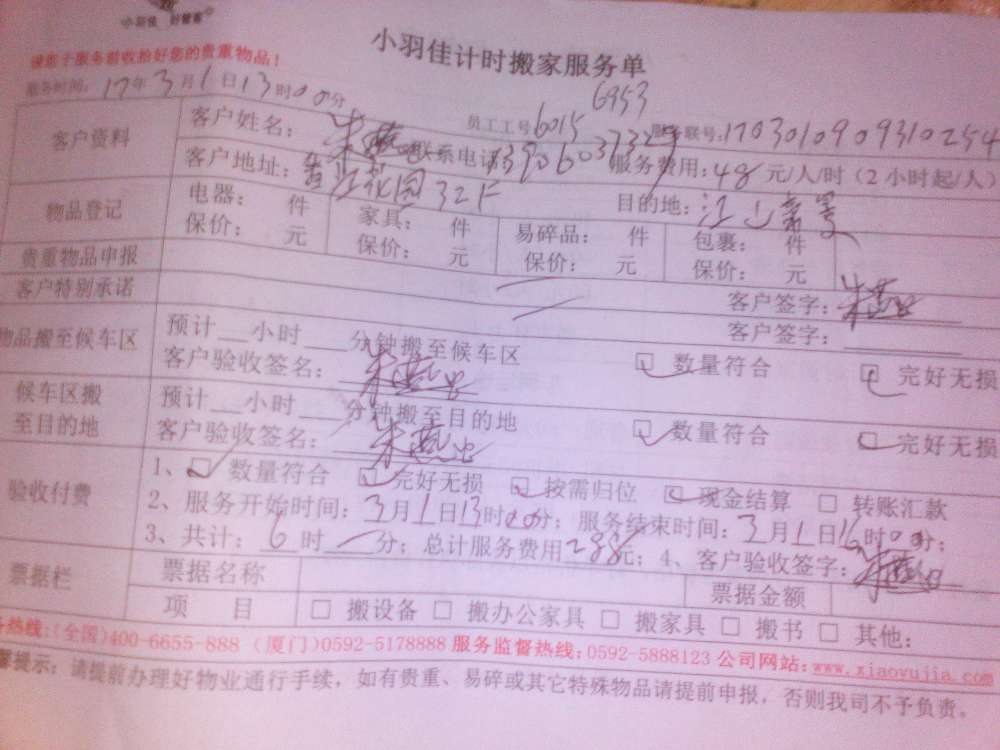 小羽佳 好管家
小羽佳计时搬家服务单
请您于服务前收拾好您的贵重物品!
服务时间: 17年3月1日13时00分
6953
员工工号6015
服务联号:1703010909310254
客户资料
客户姓名: 朱
联系电话
服务费用:48元/人/时(2小时起/人)
客户地址: 花园32F
目的地: 江山帝景
物品登记
电器: 件 家具: 件 易碎品: 件 包裹: 件
保价: 元 保价: 元 保价: 元 保价: 元
贵重物品申报
客户签字: 朱
客户特别承诺
客户签字:
物品搬至候车区
预计__小时___分钟搬至候车区
客户验收签名: 朱
☑ 数量符合 ☑ 完好无损
候车区搬至目的地
预计__小时___分钟搬至目的地
客户验收签名: 朱
☑ 数量符合 ☑ 完好无损
验收付费
1、☑ 数量符合 ☑ 完好无损 ☑ 按需归位 ☑ 现金结算 □ 转账汇款
2、服务开始时间: 3月1日13时00分; 服务结束时间: 3月1日16时00分;
3、共计: 6时一分; 总计服务费用288元; 4、客户验收签字: 朱
票据栏
票据名称 票据金额
项 目 □ 搬设备 □ 搬办公家具 □ 搬家具 □ 搬书 □ 其他:
务热线:(全国)400-6655-888 (厦门)0592-5178888 服务监督热线:0592-5888123 公司网站:www.xiaoyujia.com
馨提示: 请提前办理好物业通行手续, 如有贵重、易碎或其它特殊物品请提前申报, 否则我司不予负责。